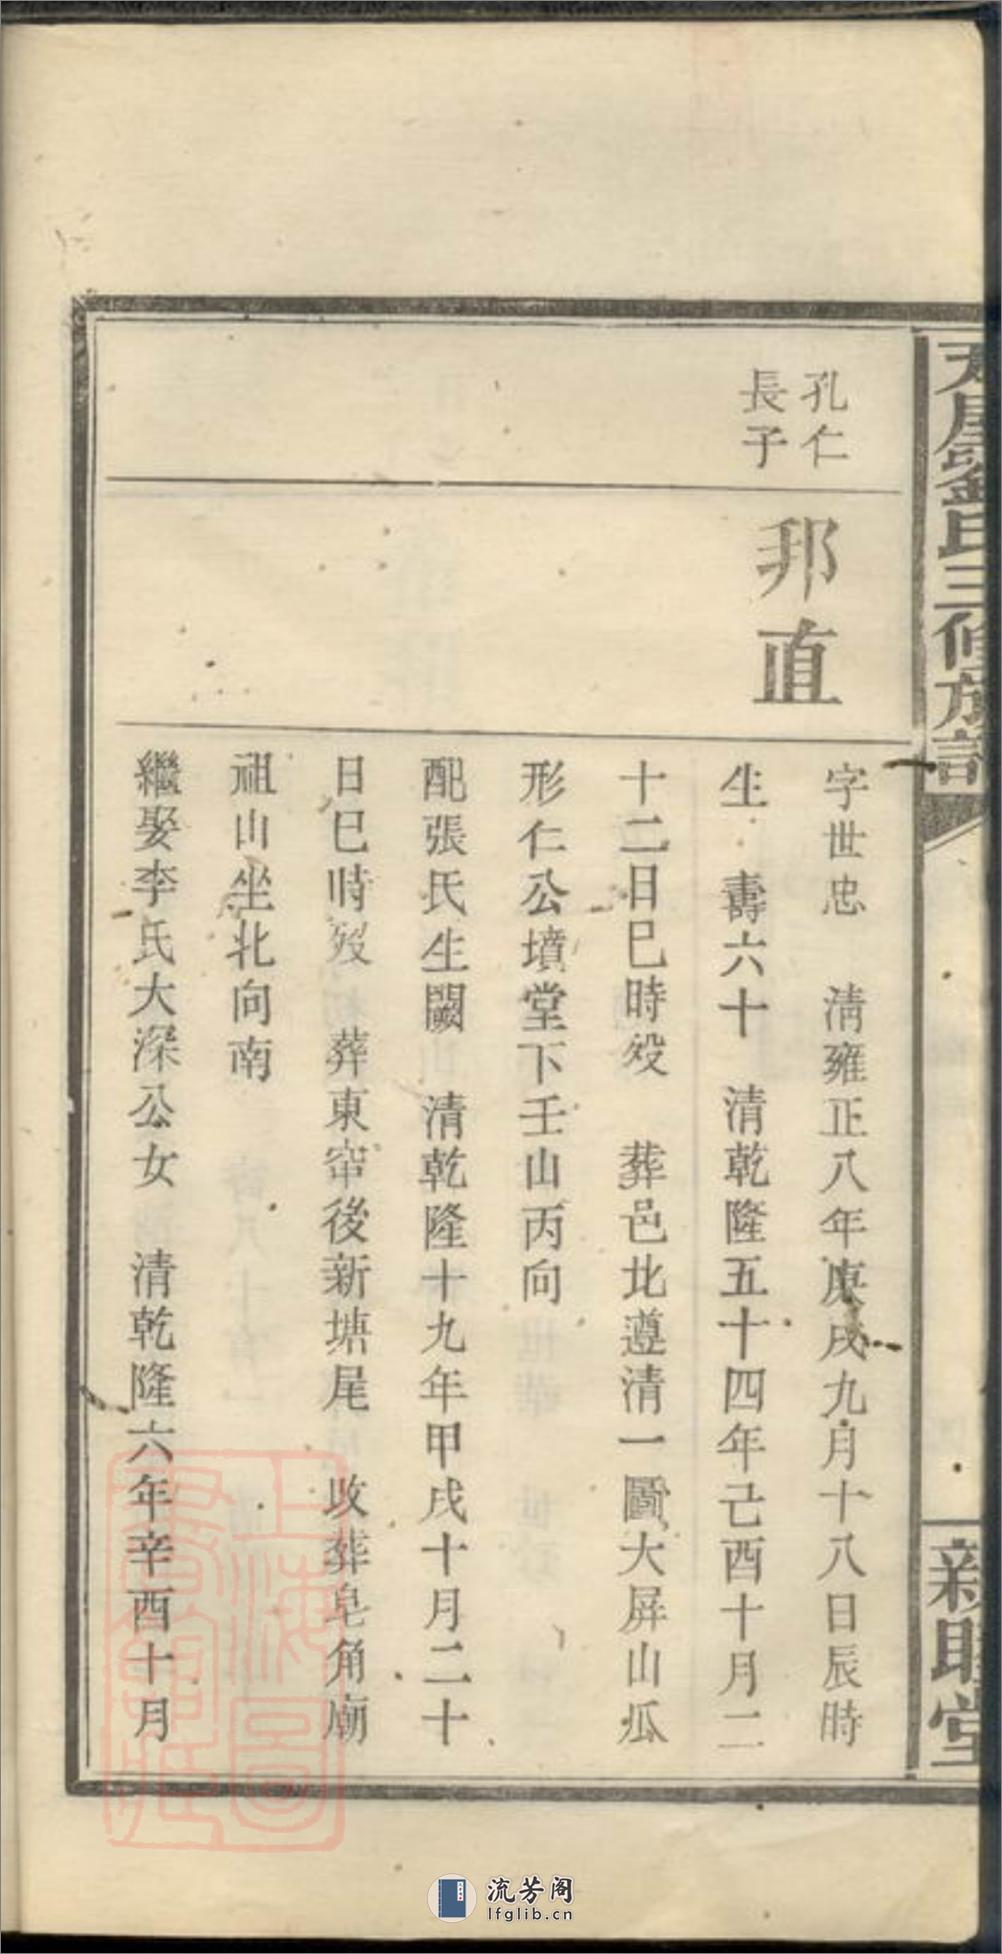 劉氏三修族譜
新睦堂
孔仁
長子
邦直
字世忠　清雍正八年庚戌九月十八日辰時
生　壽六十　清乾隆五十四年己酉十月二
十二日巳時歿　葬邑北遵清一圖大屏山瓜
形仁公墳堂下壬山丙向
配張氏生闕　清乾隆十九年甲戌十月二十
日巳時歿　葬東窂後新塘尾　改葬皂角廟
祖山坐北向南
繼娶李氏大深公女　清乾隆六年辛酉十月
上海圖書館藏
流芳阁
lfglib.cn